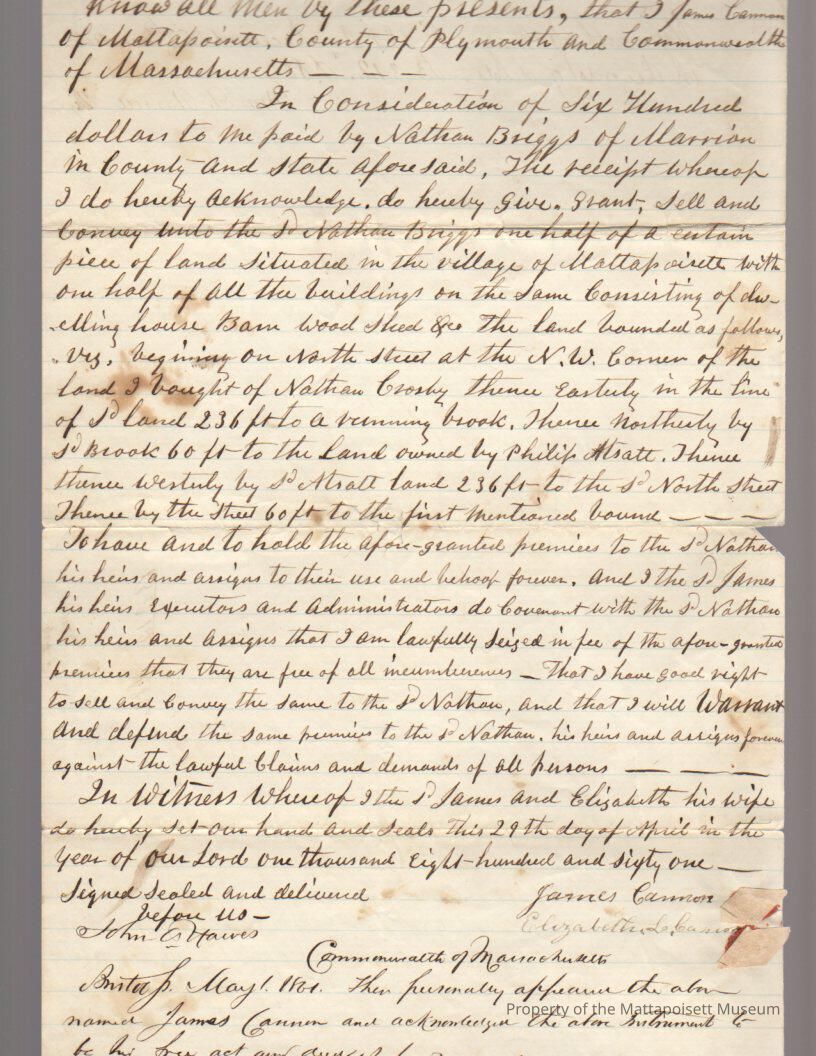 Know all Men by these presents, that I James Cannon
of Mattapoisett, County of Plymouth and Commonwealth
of Massachusetts — — —
In Consideration of Six Hundred
dollars to me paid by Nathan Briggs of Marrion
in County and State aforesaid, The receipt whereof
I do hereby acknowledge, do hereby Give, Grant, Sell and
Convey unto the Sd Nathan Briggs one half of a certain
piece of land Situated in the village of Mattapoisett with
one half of all the buildings on the same Consisting of dw-
elling house Barn Wood Shed &c The land bounded as follows,
viz, begining on North Street at the N.W. Corner of the
land I bought of Nathan Crosby thence Easterly in the line
of Sd land 236 ft to a running brook, Thence Northerly by
Sd Brook 60 ft to the Land owned by Philip Atsatt. Thence
thence Westerly by Sd Atsatt land 236 ft to the Sd North Street
Thence by the Street 60 ft to the first mentioned bound — — —
To have and to hold the afore-granted premices to the Sd Nathan
his heirs and assigns to their use and behoof forever. And I the Sd James
his heirs Executors and Administrators do Covenant with the Sd Nathan
his heirs and Assigns that I am lawfully Seized in fee of the afore-granted
premices that they are free of all incumberences — That I have good right
to sell and Convey the same to the Sd Nathan, and that I will Warrant
and defend the same premices to the Sd Nathan, his heirs and assigns forever
against the lawful Claims and demands of all persons — — —
In Witness Whereof I the Sd James and Elizabeth his wife
do hereby set our hand and seals this 29th day of April in the
year of our Lord one thousand Eight-hundred and sixty one —
Signed Sealed and delivered
before us —
James Cannon
John Hawes
Elizabeth L. Cannon
Commonwealth of Massachusetts
Bristol ss. May 1. 1861. Then personally appeared the above
named James Cannon and acknowledged the above instrument to
be his free act and deed
Property of the Mattapoisett Museum